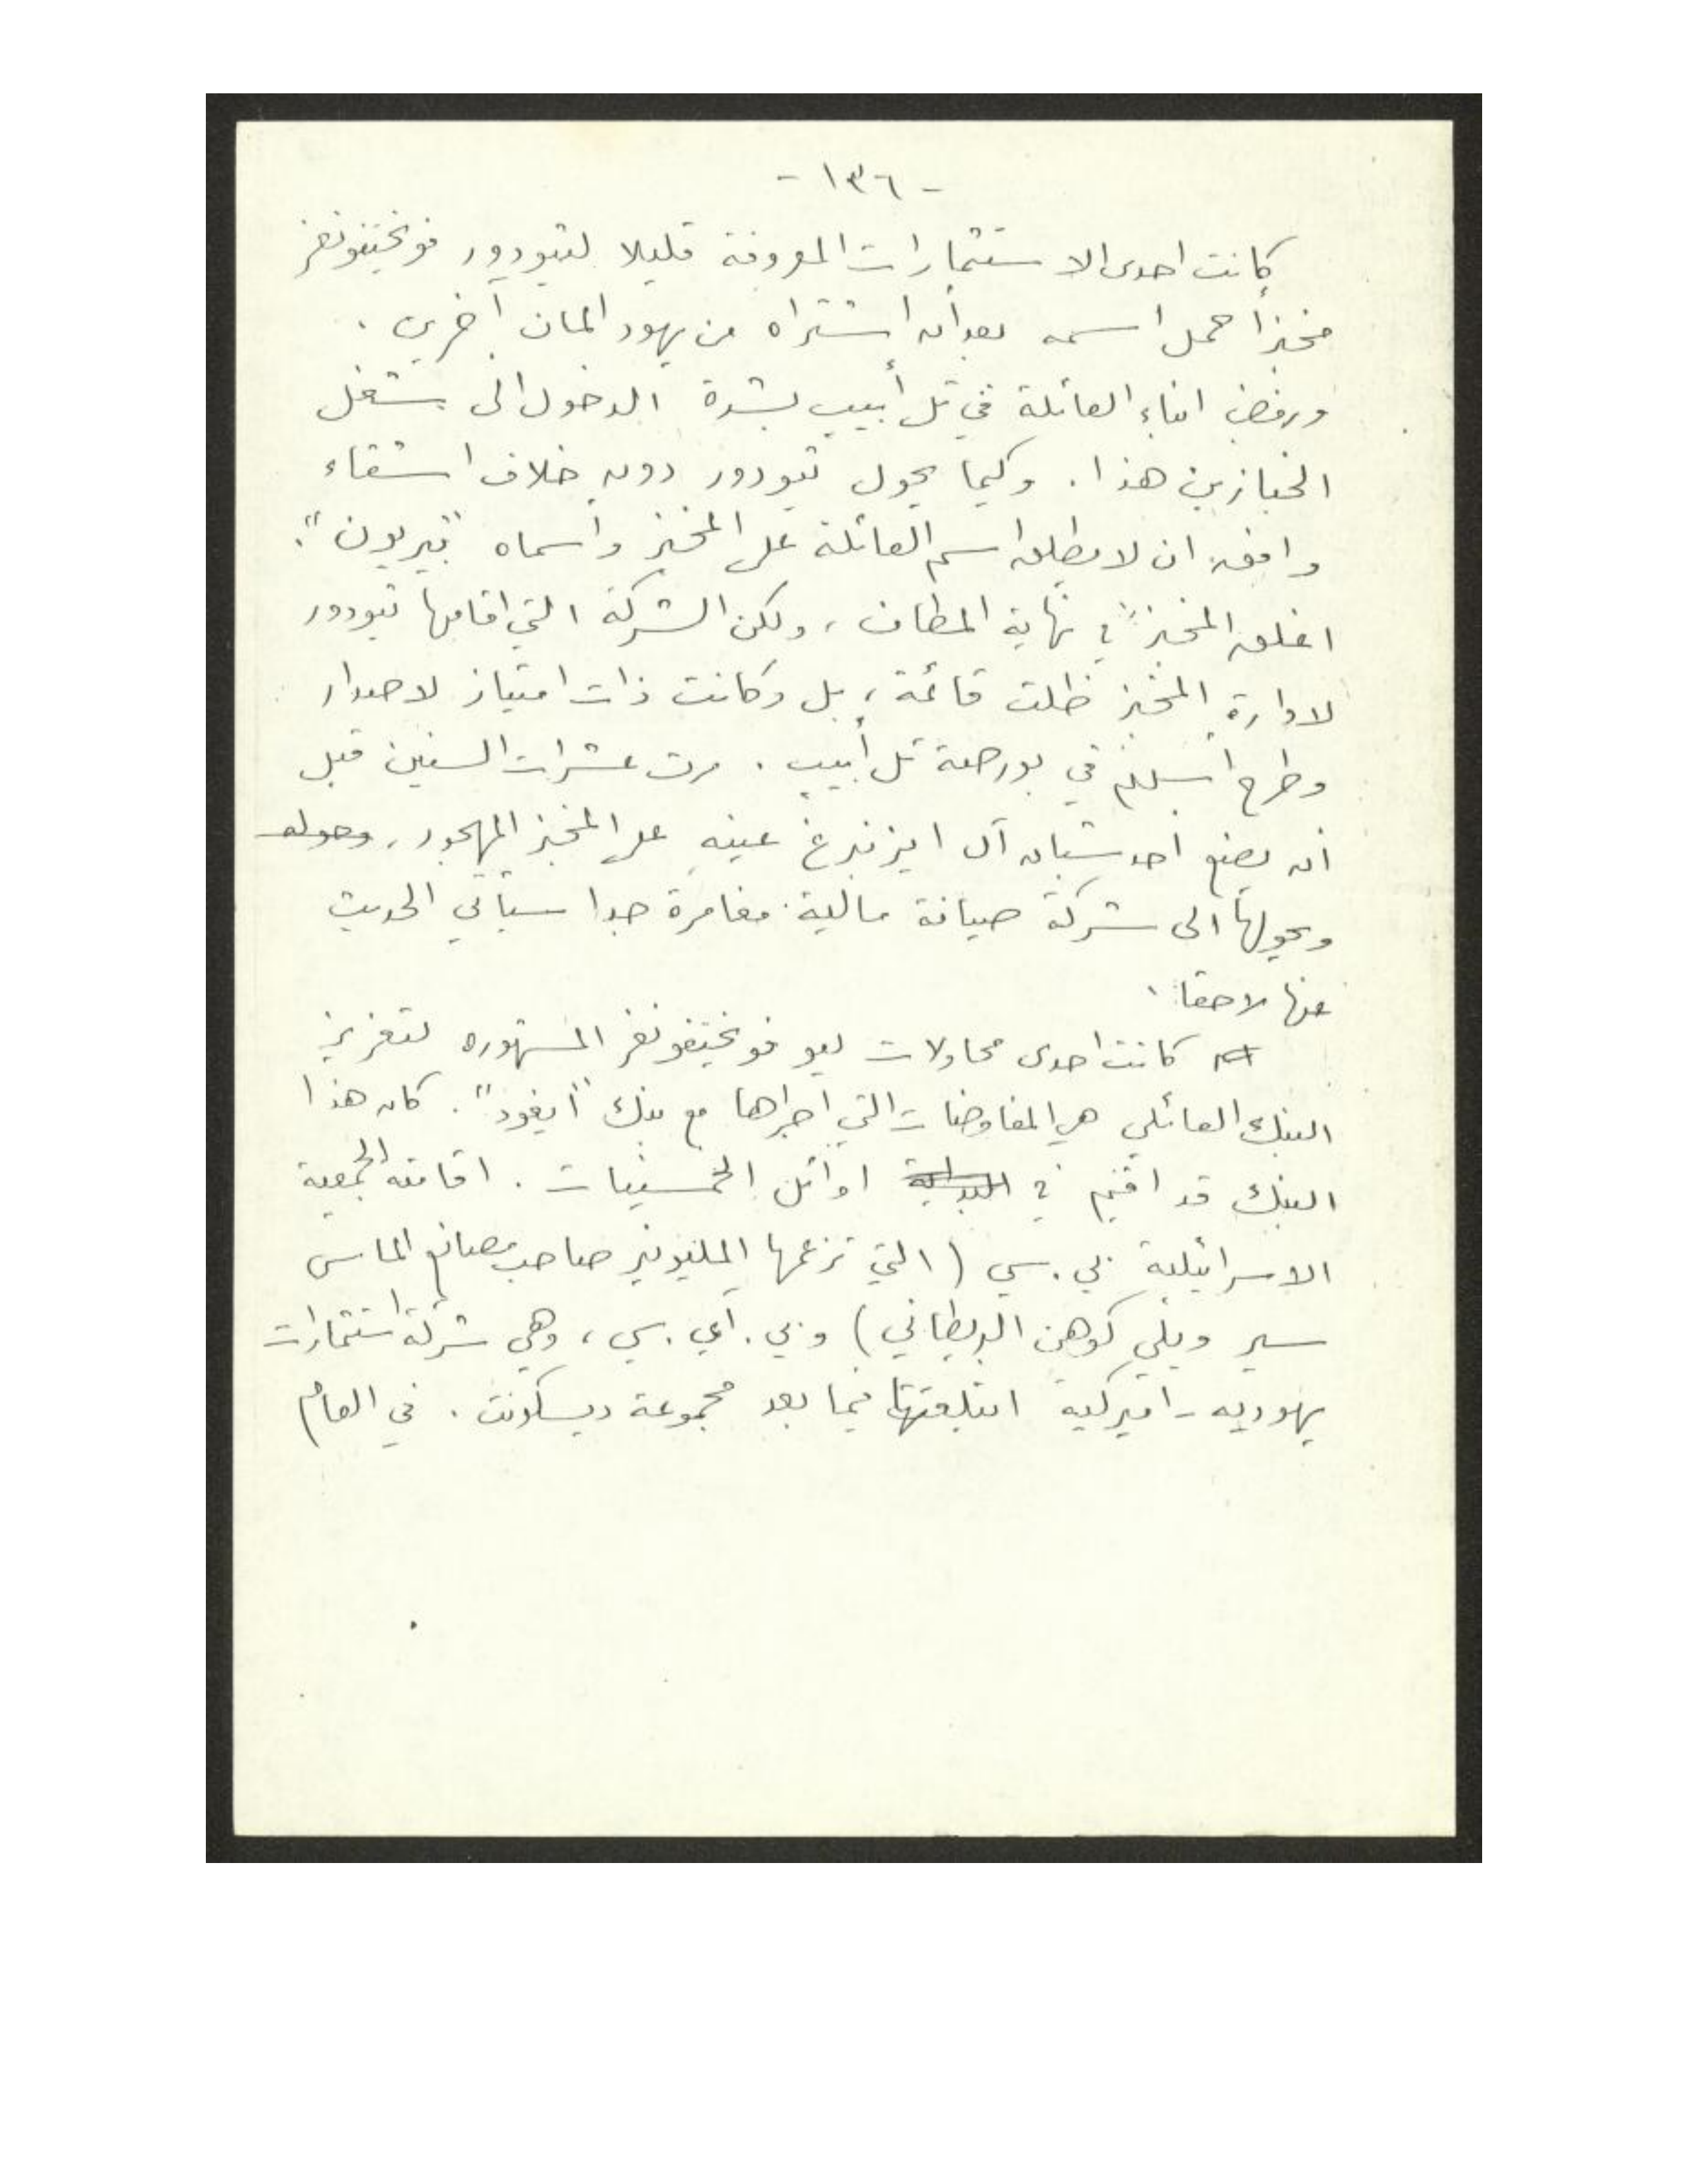 - ١٣٦ -
كانت احدى الاستثمارات المعروفة قليلا لتيودور فويختفونغر
مخبزاً حمل اسمه بعد أن اشتراه من يهود المان آخرين .
ورفض ابناء العائلة في تل أبيب بشدة الدخول الى بشغل
الخبازين هذا . وكيما يحول تيودور دون خلاف اشقاء
وافق ان لا يطلق اسم العائلة على المخبز وأسماه "تيربون".
اغلق المخبز في نهاية المطاف ، ولكن الشركة التي اقامها تيودور
لادارة المخبز ظلت قائمة ، بل وكانت ذات امتياز لاصدار
وطرح أسهم في بورصة تل أبيب . مرت عشرات السنين قبل
ان يضع احد شبان آل ايزنبرغ عينه على المخبز المهجور ، وحوله
ويحولها الى شركة صيانة مالية مغامرة جدا سيأتي الحديث
عنها لاحقا .
كانت احدى محاولات ليو فويختفونغر المشهوره لتعزيز
البنك العائلي هي المفاوضات التي اجراها مع بنك "ايغود" . كان هذا
البنك قد اقيم في البداية اوائل الخمسينيات . اقامته الجمعية
الاسرائيلية بي . سي ( التي تزعمها المليونير صاحب مصانع الماس
سير ويلي كوهن البريطاني ) و بي . آي . سي ، وهي شركة استثمارات
يهوديه - اميركية ابتلعتها فيما بعد مجموعة ديسكونت . في العام